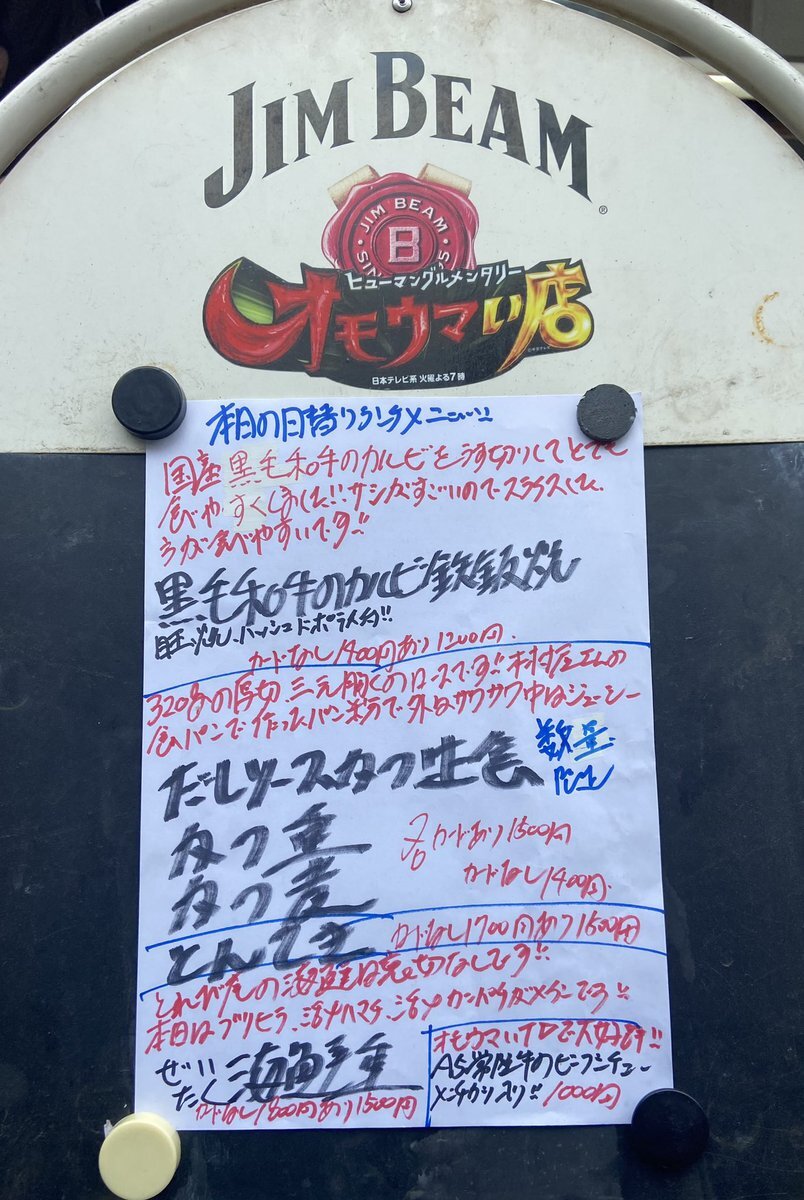 JIM BEAM
®
JIM BEAM
B
ヒューマングルメンタリー
オモウマい店
日本テレビ系 火曜よる7時
本日の日替りランチメニュー!!
国産黒毛和牛のカルビをうす切りしてとても
食べやすくしました!!サシがすごいのでスライスした
方が食べやすいです!!
黒毛和牛のカルビ鉄板焼
目玉焼、ハッシュドポテト付!!
カードなし1400円あり1200円
320gの厚切三元豚くのロースです!!木村屋さんの
食パンで作ったパン粉で外はサクサク中はジューシー
だしソースカツ定食
数量
限定
カツ重
カツ煮
カードあり1500円
カードなし1400円
とんてき
カードなし1700円あり1500円
とれぴ屋の海鮮は売切なしです!!
本日はブリヒラ、活〆ハマチ、活〆カンパチがメインです!!
ぜい
たく
海鮮重
カードなし1800円あり1500円
オモウマいTVで大好評!!
A5常陸牛のビーフシチュー
メンチカツ入り!!1000円